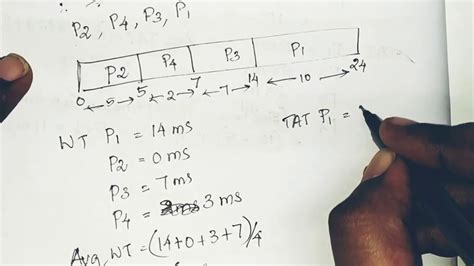 P2, P4, P3, P1
P2 P4 P3 P1
0 ←5→ 5 ←2→ 7 ←7→ 14 ←10→ 24
WT P1 = 14 ms
P2 = 0 ms
P3 = 7 ms
P4 = 3 ms
Avg WT = (14+0+3+7)/4
TAT P1 =